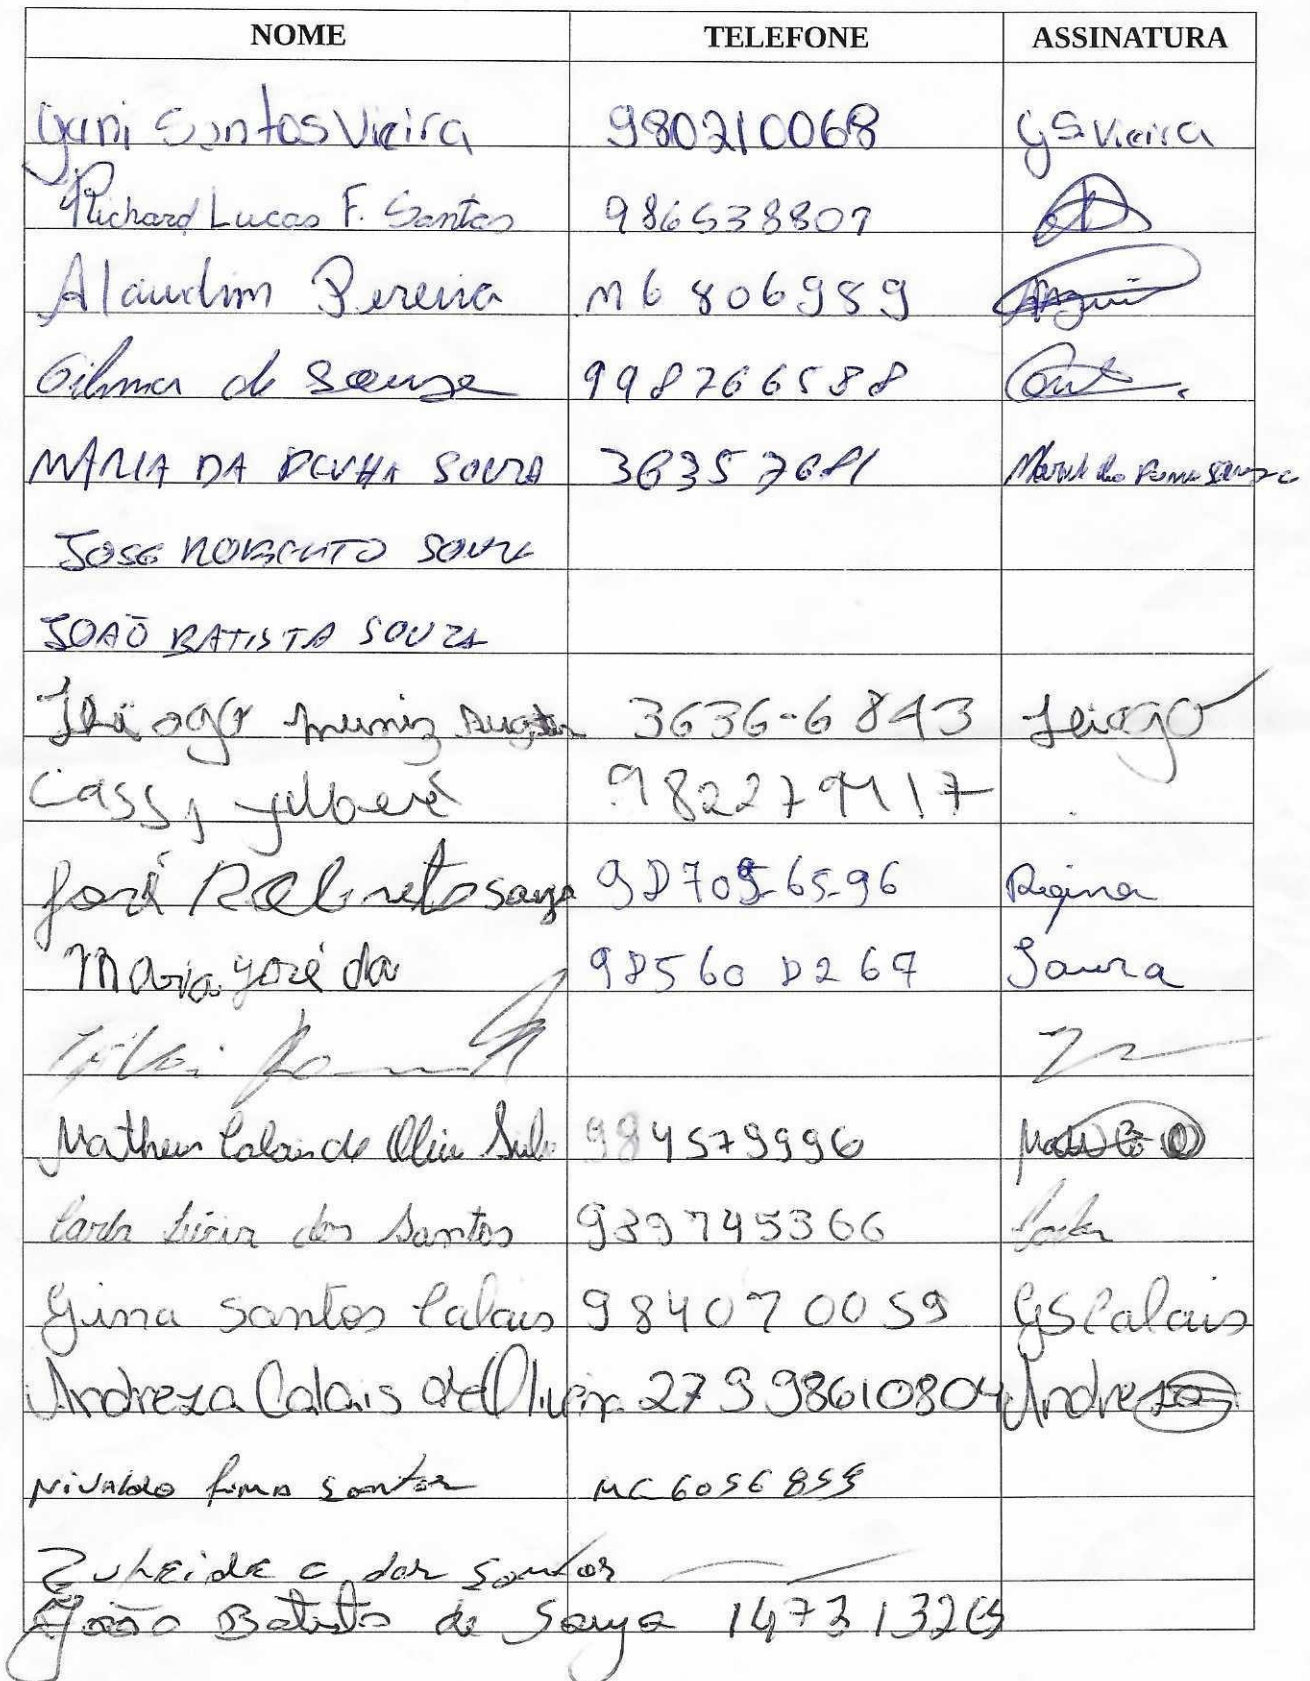 NOME TELEFONE ASSINATURA
Gani Santos Vieira 980210068 GS Vieira
Richard Lucas F. Santos 986538807
Alaudim Pereira M6 806989
Gilmar de Souza 998766588
MARIA DA PENHA SOUZA 36357681
JOSE ROBERTO SOUZA
JOAÕ BATISTA SOUZA
Thiago Muniz 3636-6843 Thiago
Cassy 982279117
José Roberto Souza 98709-6596 Regina
Maria José da 98560 0267 Souza
Matheus Calais de Oliv Silv 984579996
Carla Lúcia dos Santos 989745366 Carla
Gina Santos Calais 984070059 GS Calais
Andreza Calais de Oliveira 27998610804 Andreza
Nivaldo Lima Santos MG6056859
Zuleide C dos Santos
João Batista de Souza